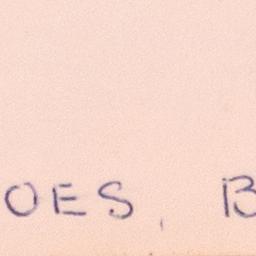 OES, B